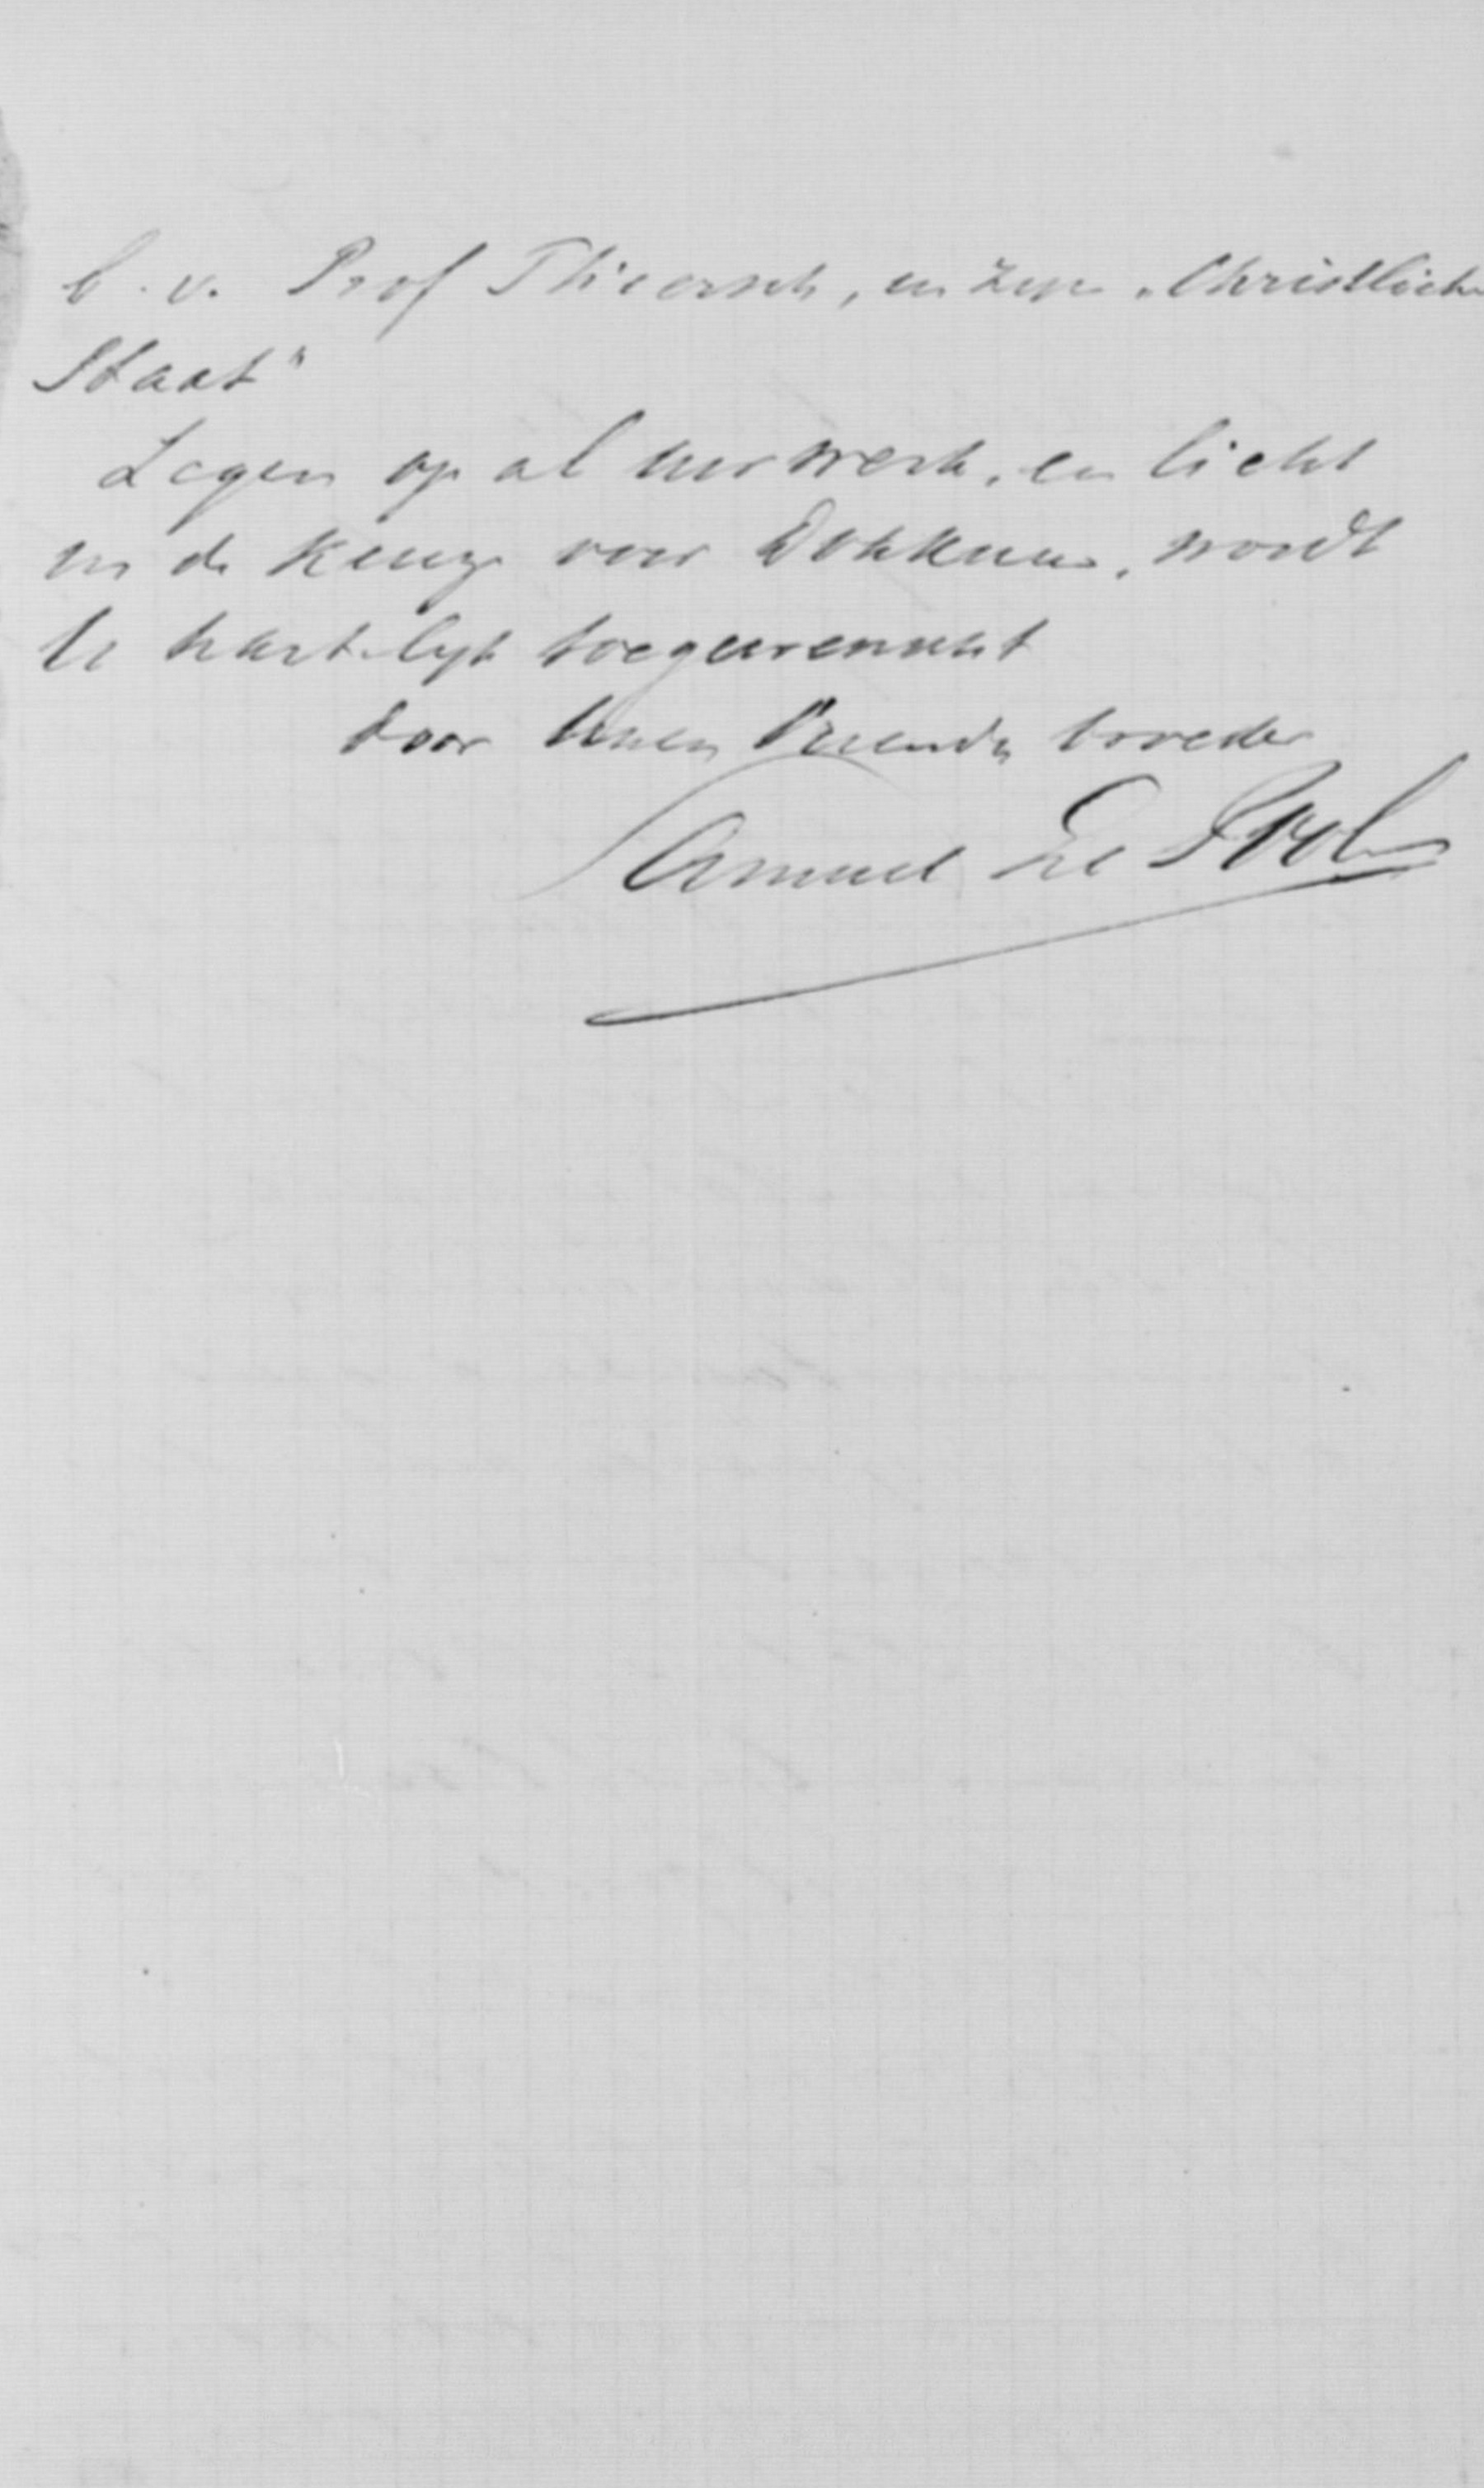 b.v. Prof Thiersch, in zijn „Christliche
Staat"
Zegen op al uw werk, en licht
in de keuze voor Dokkum, wordt
U hartelijk toegewenscht
door Uwen vriend en broeder
Samuel